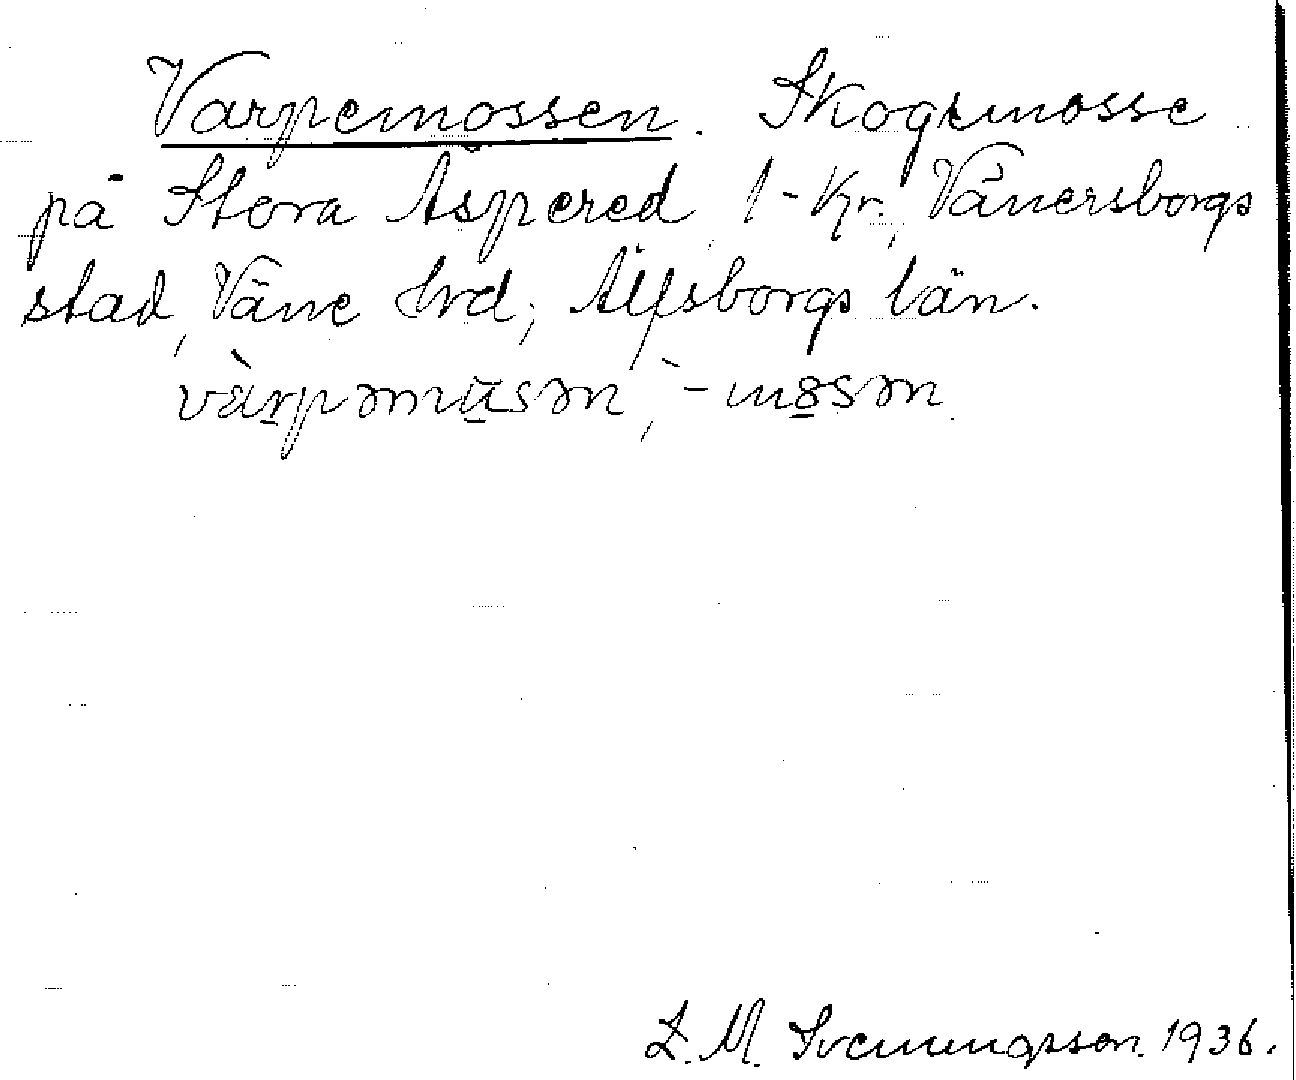 Varpemossen. Skogsmosse
på Stora Äspered, 1-Kr., Vänersborgs
stad, Väne hrd, Älfsborgs län.
vàrpəmūsən, -mɵsən
L. M. Svenungsson. 1936.